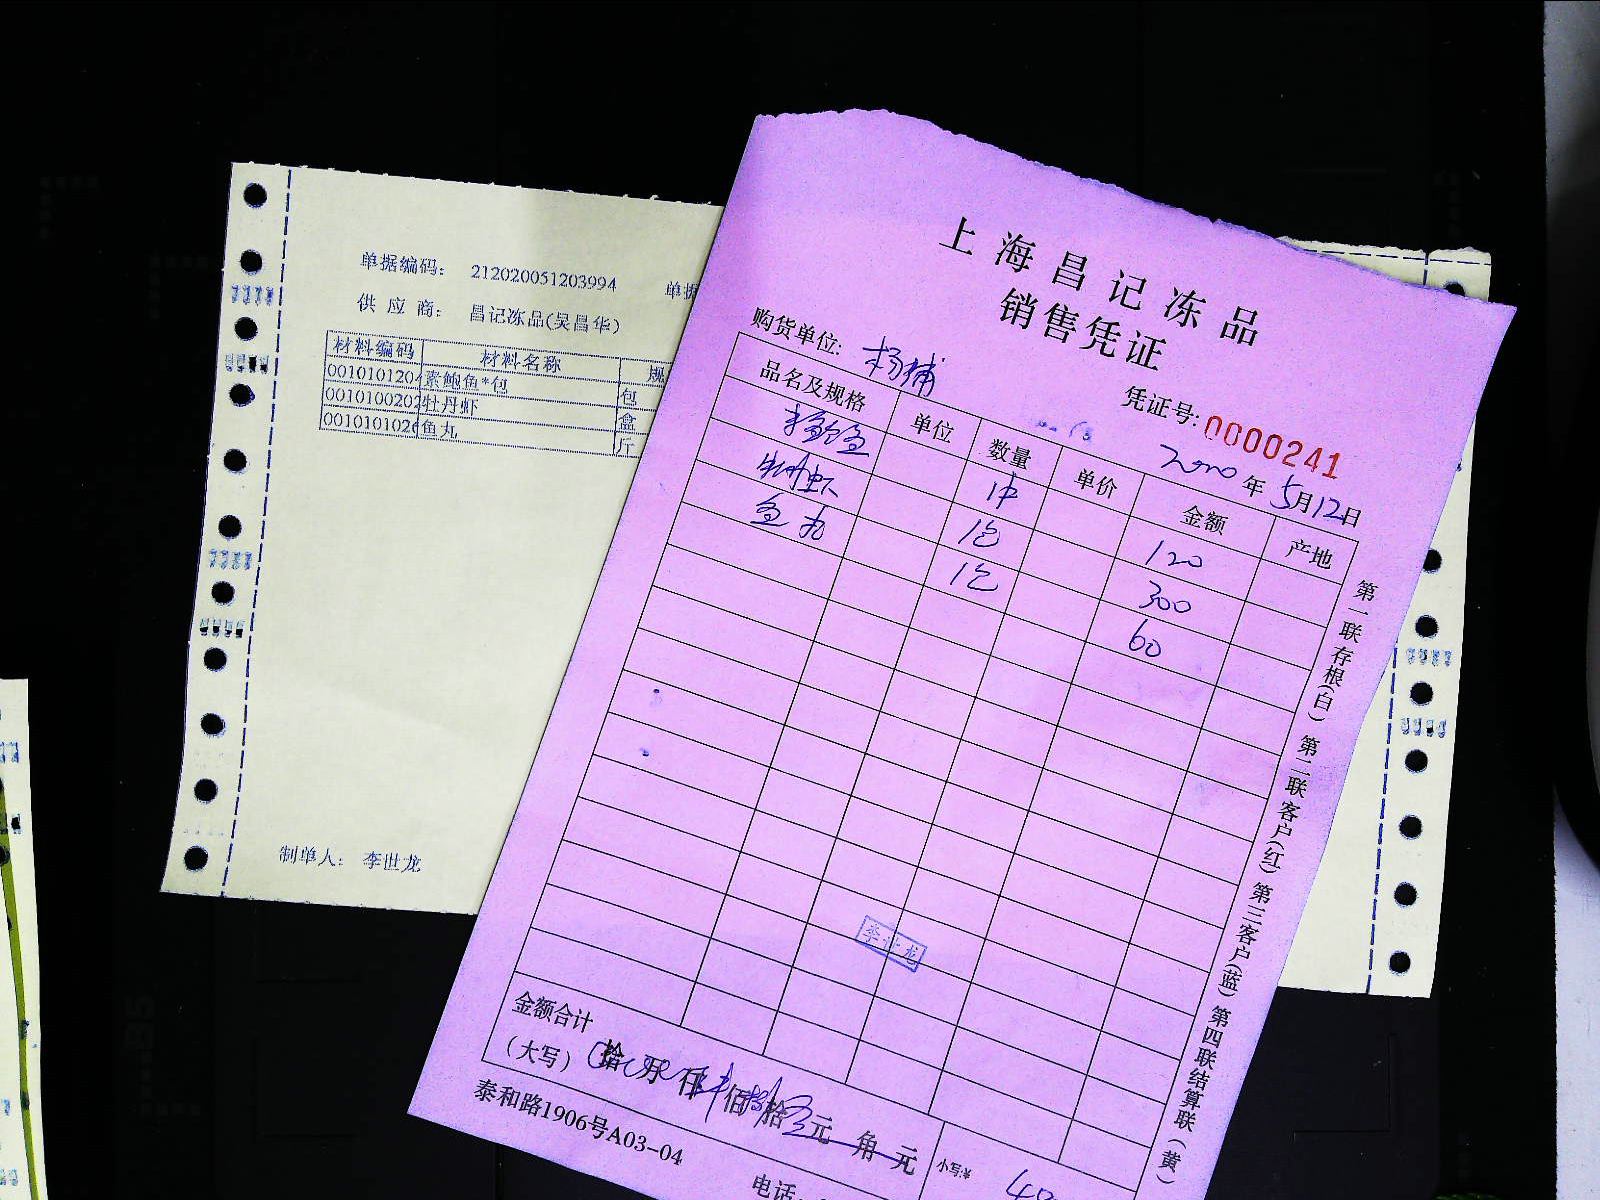 单据编码: 212020051203994 单据
供应商: 昌记冻品(吴昌华)
材料编码 材料名称 规
0010101204 素鲍鱼*包 包
0010100202 牡丹虾 盒
0010101026 鱼丸 斤
制单人: 李世龙
上海昌记冻品
销售凭证
购货单位: 杨埔
凭证号: 0000241
2020年5月12日
品名及规格 单位 数量 单价 金额 产地
鲍鱼 1 120
牡丹虾 1包 300
鱼丸 1包 60
李世龙
金额合计
(大写) 拾 万 仟 佰 拾 元 角 元
小写:¥
泰和路1906号A03-04
电话
第一联存根(白) 第二联客户(红) 第三客户(蓝) 第四联结算联(黄)